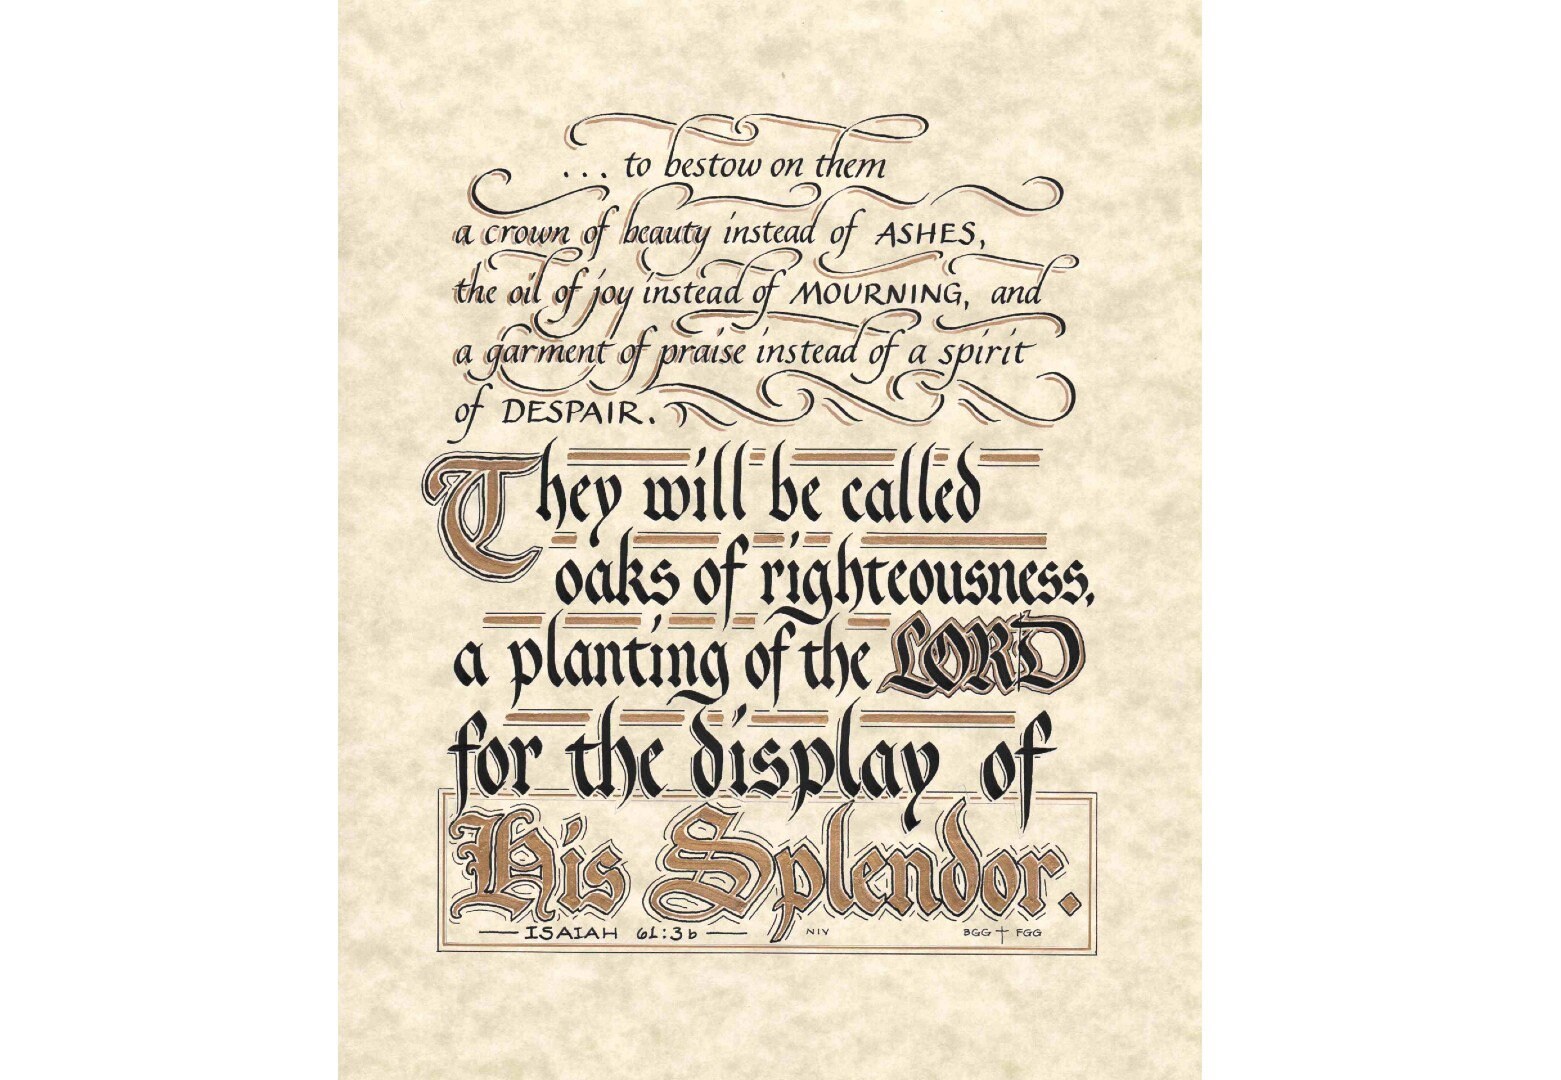 ...to bestow on them
a crown of beauty instead of ASHES,
the oil of joy instead of MOURNING, and
a garment of praise instead of a spirit
of DESPAIR.
They will be called
oaks of righteousness,
a planting of the LORD
for the display of
His Splendor.
ISAIAH 61:3b NIV BGG † FGG